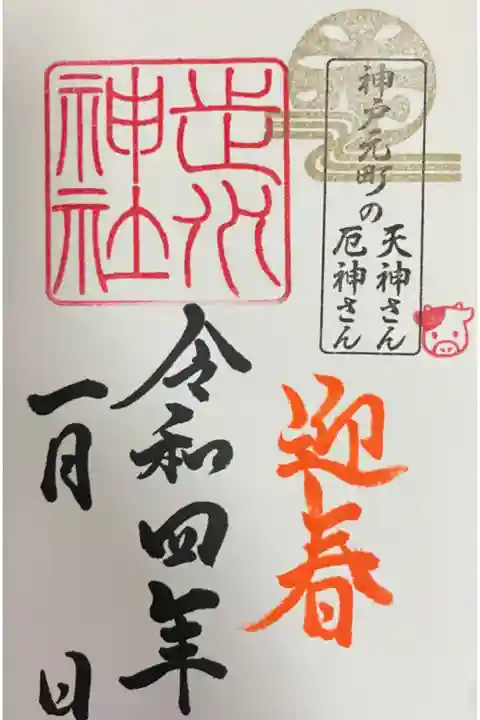 神戸元町の
天神さん
厄神さん
迎春
走水
神社
令和四年
一月 日